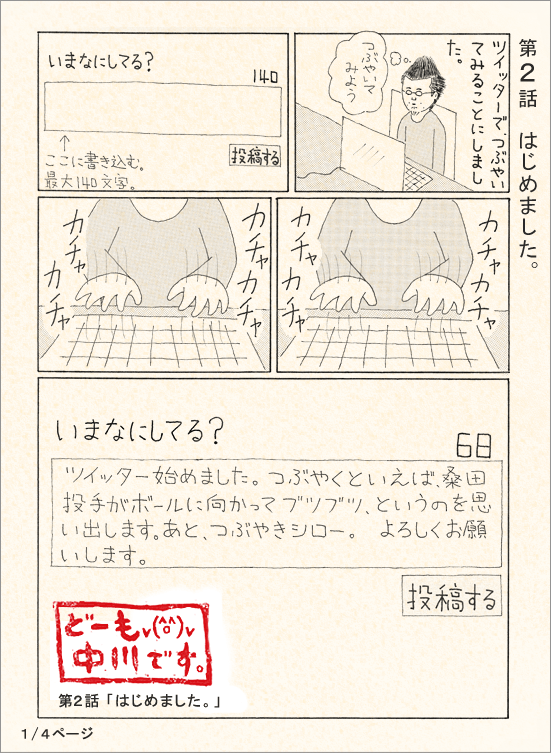 第2話　はじめました。
ツイッターで、つぶやい
てみることにしまし
た。
つぶやいて
みよう
いまなにしてる？
140
↑
ここに書き込む。
最大140文字。
投稿する
カチャカチャ
カチャカチャ
カチャカチャ
カチャカチャ
いまなにしてる？
68
ツイッター始めました。つぶやくといえば、桑田
投手がボールに向かってブツブツ、というのを思
い出します。あと、つぶやきシロー。　よろしくお願
いします。
投稿する
どーもv(^^)v
中川です。
第2話「はじめました。」
1/4ページ